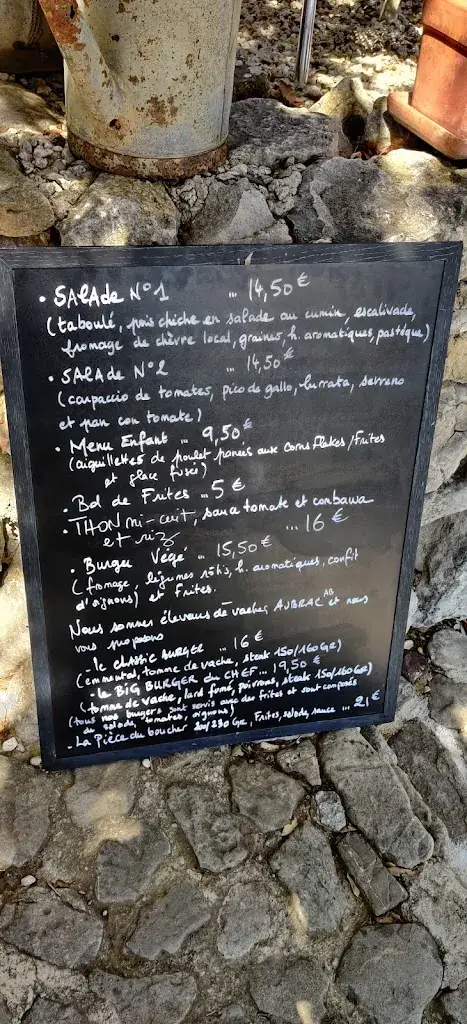 • SALAde N°1 ... 14,50€
(taboulé, pois chiche en salade au cumin, escalivade,
fromage de chèvre local, graines, h. aromatiques, pastèque)
• SALAde N°2 ... 14,50€
(carpaccio de tomates, pico de gallo, burrata, serrano
et pan con tomate)
• Menu Enfant ... 9,50€
(aiguillettes de poulet panées aux Corns Flakes/Frites
et glace fusée)
• Bol de Frites ... 5€
• THON mi-cuit, sauce tomate et combawa
et riz ... 16€
• Burger Végé ... 15,50€
(fromage, légumes rôtis, h. aromatiques, confit
d'oignons) et Frites.
Nous sommes éleveurs de vaches AUBRAC AB et nous
vous proposons
• le CLASSIC BURGER ... 16€
(emmental, tomme de vache, steak 150/160Gr)
• le BIG BURGER du CHEF ... 19,50€
(tomme de vache, lard fumé, poivrons, steak 150/160Gr)
(tous nos burgers sont servis avec des frites et sont composés
de salade, tomates, oignons)
• La Pièce du boucher 200/230Gr, Frites, salade, sauce ... 21€